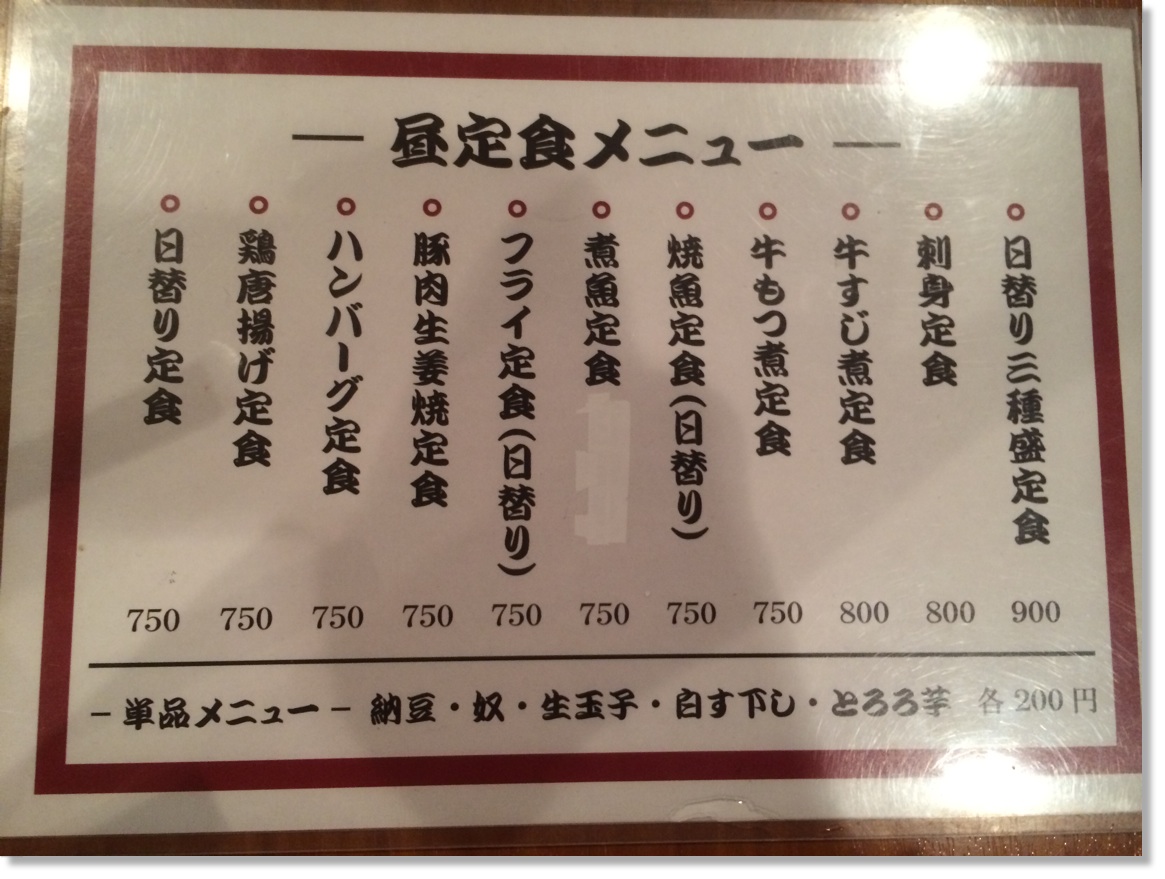 ― 昼定食メニュー ―
日替り三種盛定食 900
刺身定食 800
牛すじ煮定食 800
牛もつ煮定食 750
焼魚定食(日替り) 750
煮魚定食 750
フライ定食(日替り) 750
豚肉生姜焼定食 750
ハンバーグ定食 750
鶏唐揚げ定食 750
日替り定食 750
－単品メニュー－ 納豆・奴・生玉子・白す下し・とろろ芋 各200円